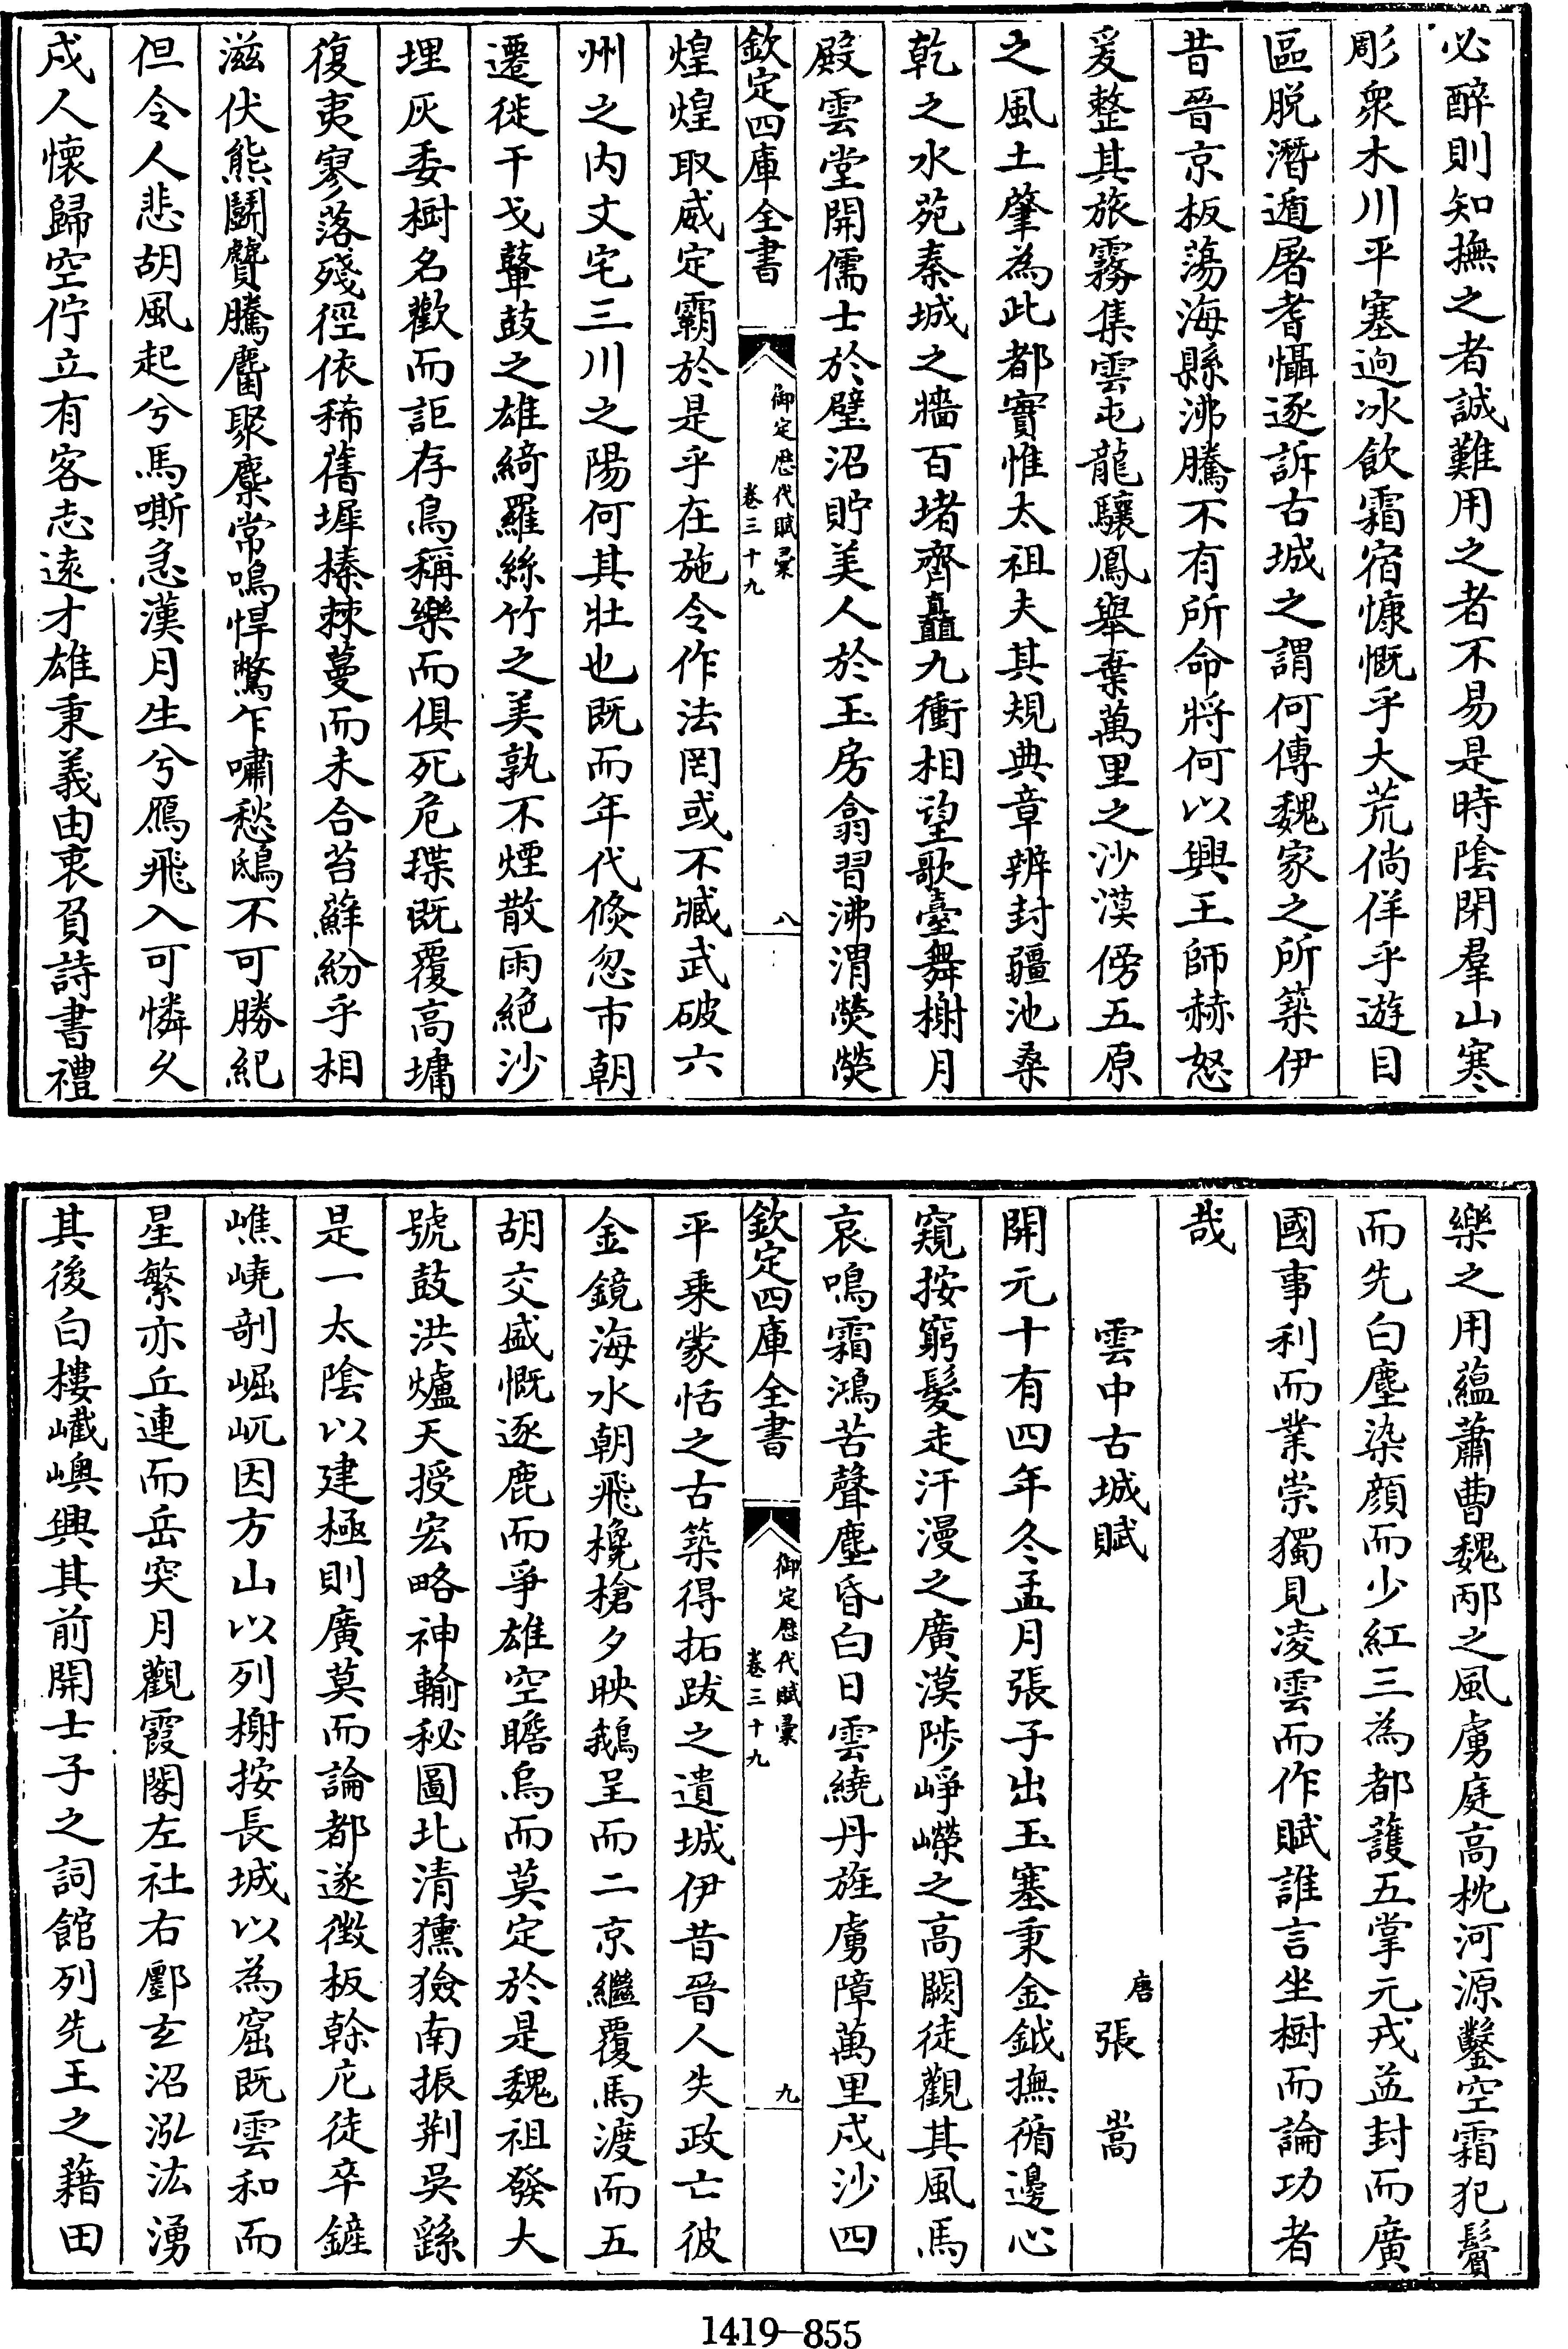 必醉則知撫之者誠難用之者不易是時陰閉羣山寒
彫衆木川平塞逈冰飲霜宿慷慨乎大荒倘佯乎遊目
區脱潛遁屠耆懾逐訴古城之謂何傳魏家之所築伊
昔晉京板蕩海縣沸騰不有所命將何以興王師赫怒
爰整其旅霧集雲屯龍驤鳳舉棄萬里之沙漠傍五原
之風土肇為此都實惟太祖夫其規典章辨封疆池桑
乾之水苑秦城之牆百堵齊矗九衢相望歌臺舞榭月
殿雲堂開儒士於璧沼貯美人於玉房翕習沸渭熒熒
欽定四庫全書
御定歷代賦彙
卷三十九
八
煌煌取威定霸於是乎在施令作法罔或不臧武破六
州之内文宅三川之陽何其壯也既而年代倏忽市朝
遷徙干戈鼙鼓之雄綺羅絲竹之美孰不煙散雨絶沙
埋灰委樹名歡而詎存鳥稱樂而俱死危堞既覆高墉
復夷寥落殘徑依稀舊墀榛棘蔓而未合苔蘚紛乎相
滋伏熊鬬贙騰麏聚麋常鳴悍驚乍嘯愁鴟不可勝紀
但令人悲胡風起兮馬嘶急漢月生兮鴈飛入可憐久
戍人懷歸空佇立有客志遠才雄秉義由衷負詩書禮
樂之用蘊蕭曹魏邴之風虜庭高枕河源鑿空霜犯鬢
而先白塵染顔而少紅三為都護五掌元戎益封而廣
國事利而業崇獨見凌雲而作賦誰言坐樹而論功者
哉
雲中古城賦
唐 張嵩
開元十有四年冬孟月張子出玉塞秉金鉞撫循邊心
窺按窮髮走汗漫之廣漠陟崢嶸之高闕徒觀其風馬
哀鳴霜鴻苦聲塵昏白日雲繞丹旌虜障萬里戍沙四
欽定四庫全書
御定歷代賦彙
卷三十九
九
平乗蒙恬之古築得拓跋之遺城伊昔晉人失政亡彼
金鏡海水朝飛欃槍夕映鵝呈而二京繼覆馬渡而五
胡交盛慨逐鹿而爭雄空瞻烏而莫定於是魏祖發大
號鼓洪爐天授宏略神輸秘圖北清獯獫南振荆吳繇
是一太陰以建極則廣莫而論都遂徵板幹庀徒卒鏟
嶕嶢剒崛屼因方山以列榭按長城以為窟既雲和而
星繁亦丘連而岳突月觀霞閣左社右鄽玄沼泓汯湧
其後白樓巀嶴興其前開士子之詞館列先王之藉田
1419-855